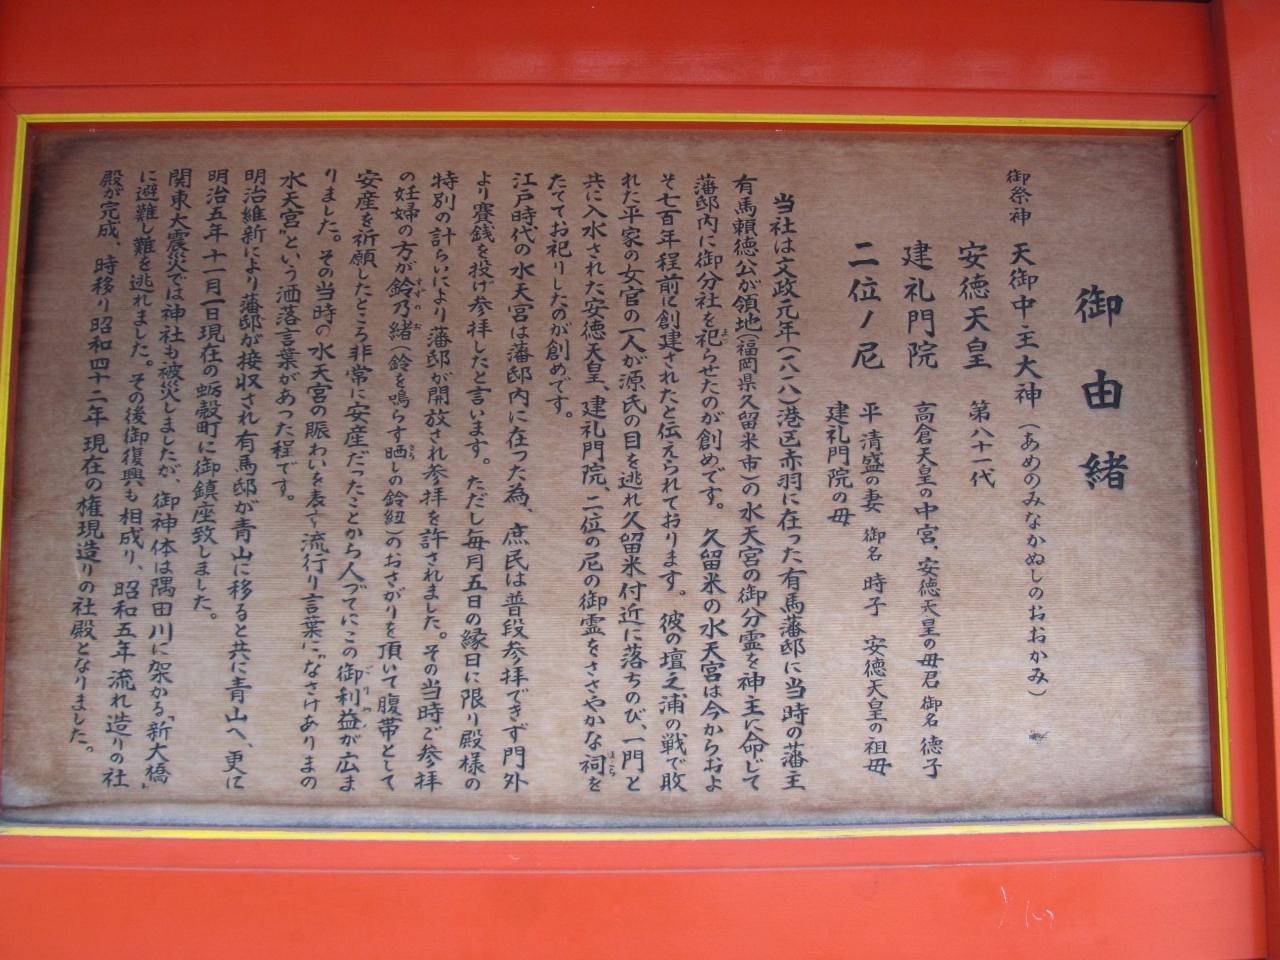 御由緒
御祭神 天御中主大神(あめのみなかぬしのおおかみ)
安徳天皇 第八十一代
建礼門院 高倉天皇の中宮、安徳天皇の母君 御名 徳子
二位ノ尼 平清盛の妻 御名 時子 安徳天皇の祖母
建礼門院の母
当社は文政元年(一八一八)港区赤羽に在った有馬藩邸に当時の藩主
有馬頼徳公が領地(福岡県久留米市)の水天宮の御分霊を神主に命じて
藩邸内に御分社を祀らせたのが創めです。久留米の水天宮は今からおよ
そ七百年程前に創建されたと伝えられております。彼の壇之浦の戦で敗
れた平家の女官の一人が源氏の目を逃れ久留米付近に落ちのび、一門と
共に入水された安徳天皇、建礼門院、二位の尼の御霊をささやかな祠を
たててお祀りしたのが創めです。
江戸時代の水天宮は藩邸内に在った為、庶民は普段参拝できず門外
より賽銭を投げ参拝したと言います。ただし毎月五日の縁日に限り殿様の
特別の計らいにより藩邸が開放され参拝を許されました。その当時ご参拝
の妊婦の方が鈴乃緒(鈴を鳴らす晒しの鈴紐)のおさがりを頂いて腹帯として
安産を祈願したところ非常に安産だったことから人づてにこの御利益が広ま
りました。その当時の水天宮の賑わいを表す流行り言葉に“なさけありまの
水天宮”という洒落言葉があった程です。
明治維新により藩邸が接収され有馬邸が青山に移ると共に青山へ、更に
明治五年十一月一日現在の蛎殻町に御鎮座致しました。
関東大震災では神社も被災しましたが、御神体は隅田川に架かる「新大橋」
に避難し難を逃れました。その後御復興も相成り、昭和五年流れ造りの社
殿が完成、時移り昭和四十二年現在の権現造りの社殿となりました。